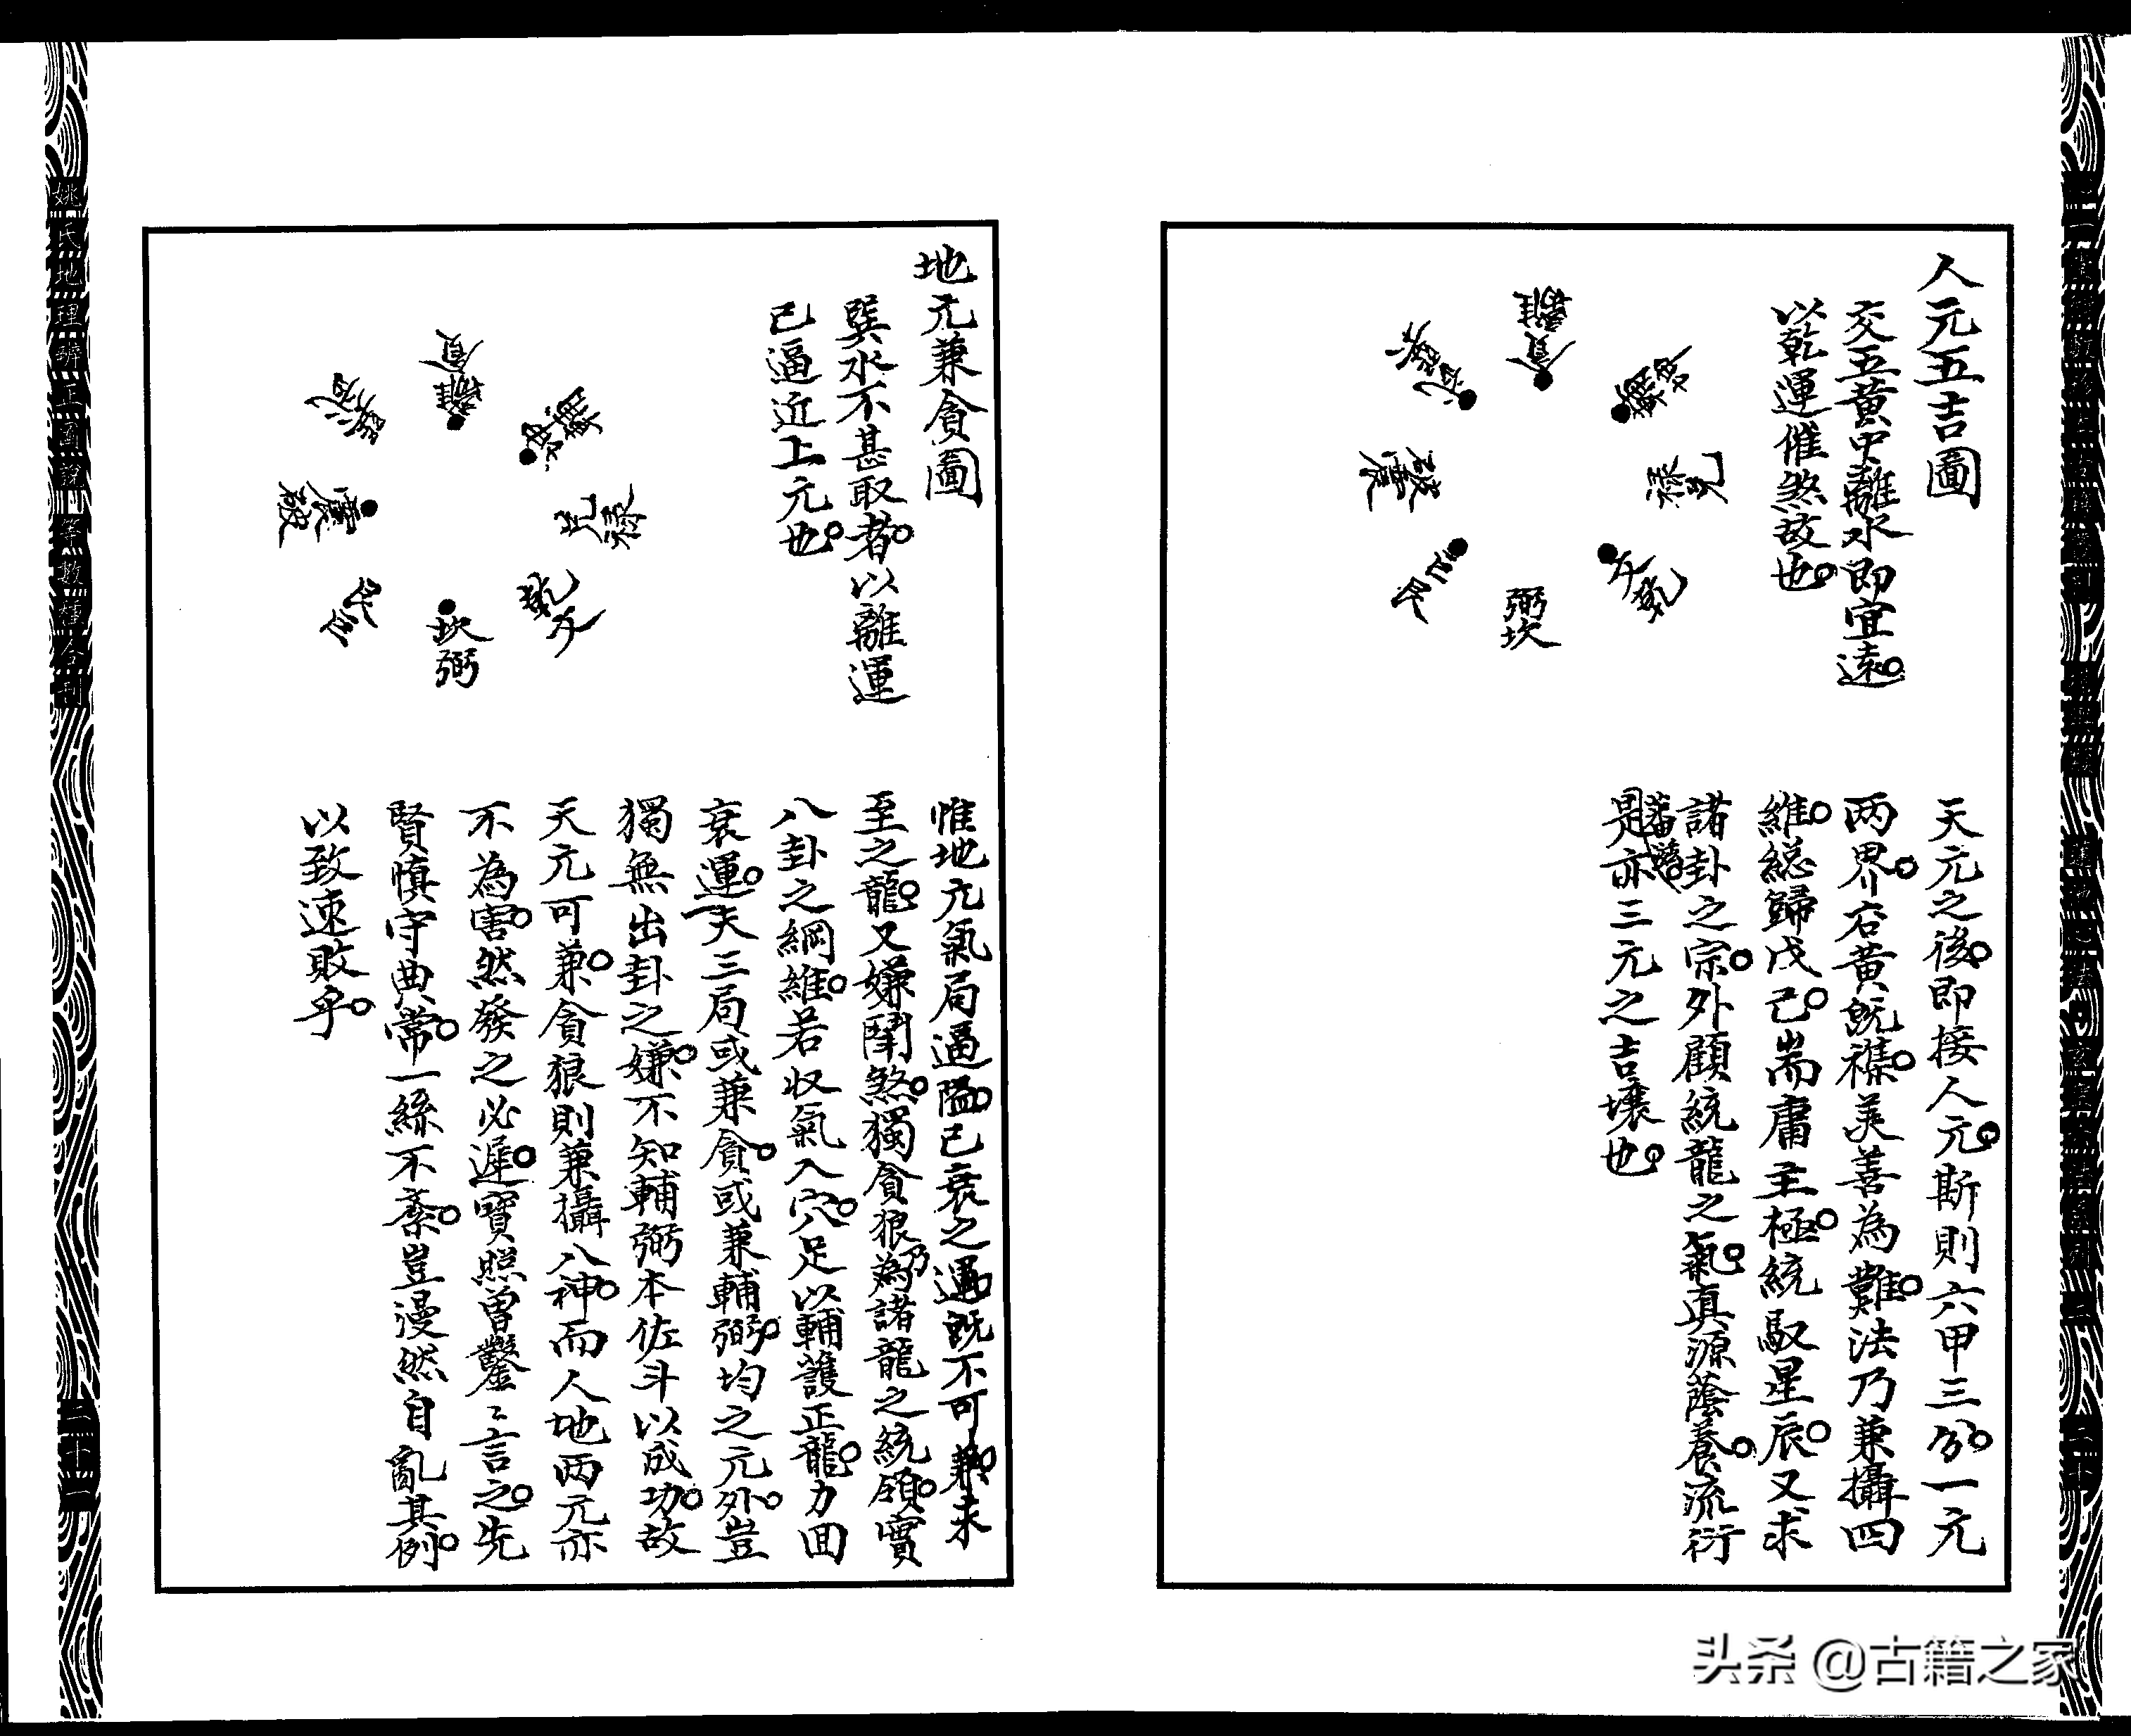 人元五吉圖
交五黃中離水即宜遠
以乾運催煞故也
離貪
巽武
震破
艮巨
坎弼
乾文
兌祿
坤輔
天元之後即接人元斯則六甲三分一元
兩界宕黃既襍美善為難法乃兼攝四
維總歸戊己耑庸主極統馭星辰又求
諸卦之宗外顧統龍之氣真源蔭養流衍
蕃
是亦三元之吉壤也
地元兼貪圖
巽水不甚取者以離運
已逼近上元也
貪離
巽武
震破
艮巨
坎弼
乾文
兌祿
坤輔
惟地元氣局逼隘已衰之運既不可兼未
至之龍又嫌鬪煞獨貪狼乃為諸龍之統領實
八卦之綱維若收氣入穴足以輔護正龍力回
衰運夫三局或兼貪或兼輔弼均之元外豈
獨無出卦之嫌不知輔弼本佐斗以成功故
天元可兼貪狼則兼攝八神而人地兩元亦
不為害然發之必遲寶照曾鑿鑿言之先
賢慎守典常一絲不紊豈漫然自亂其例
以致速敗乎
姚氏地理辨正圖說等數種合刊
二十一
頭条 @古籍之家